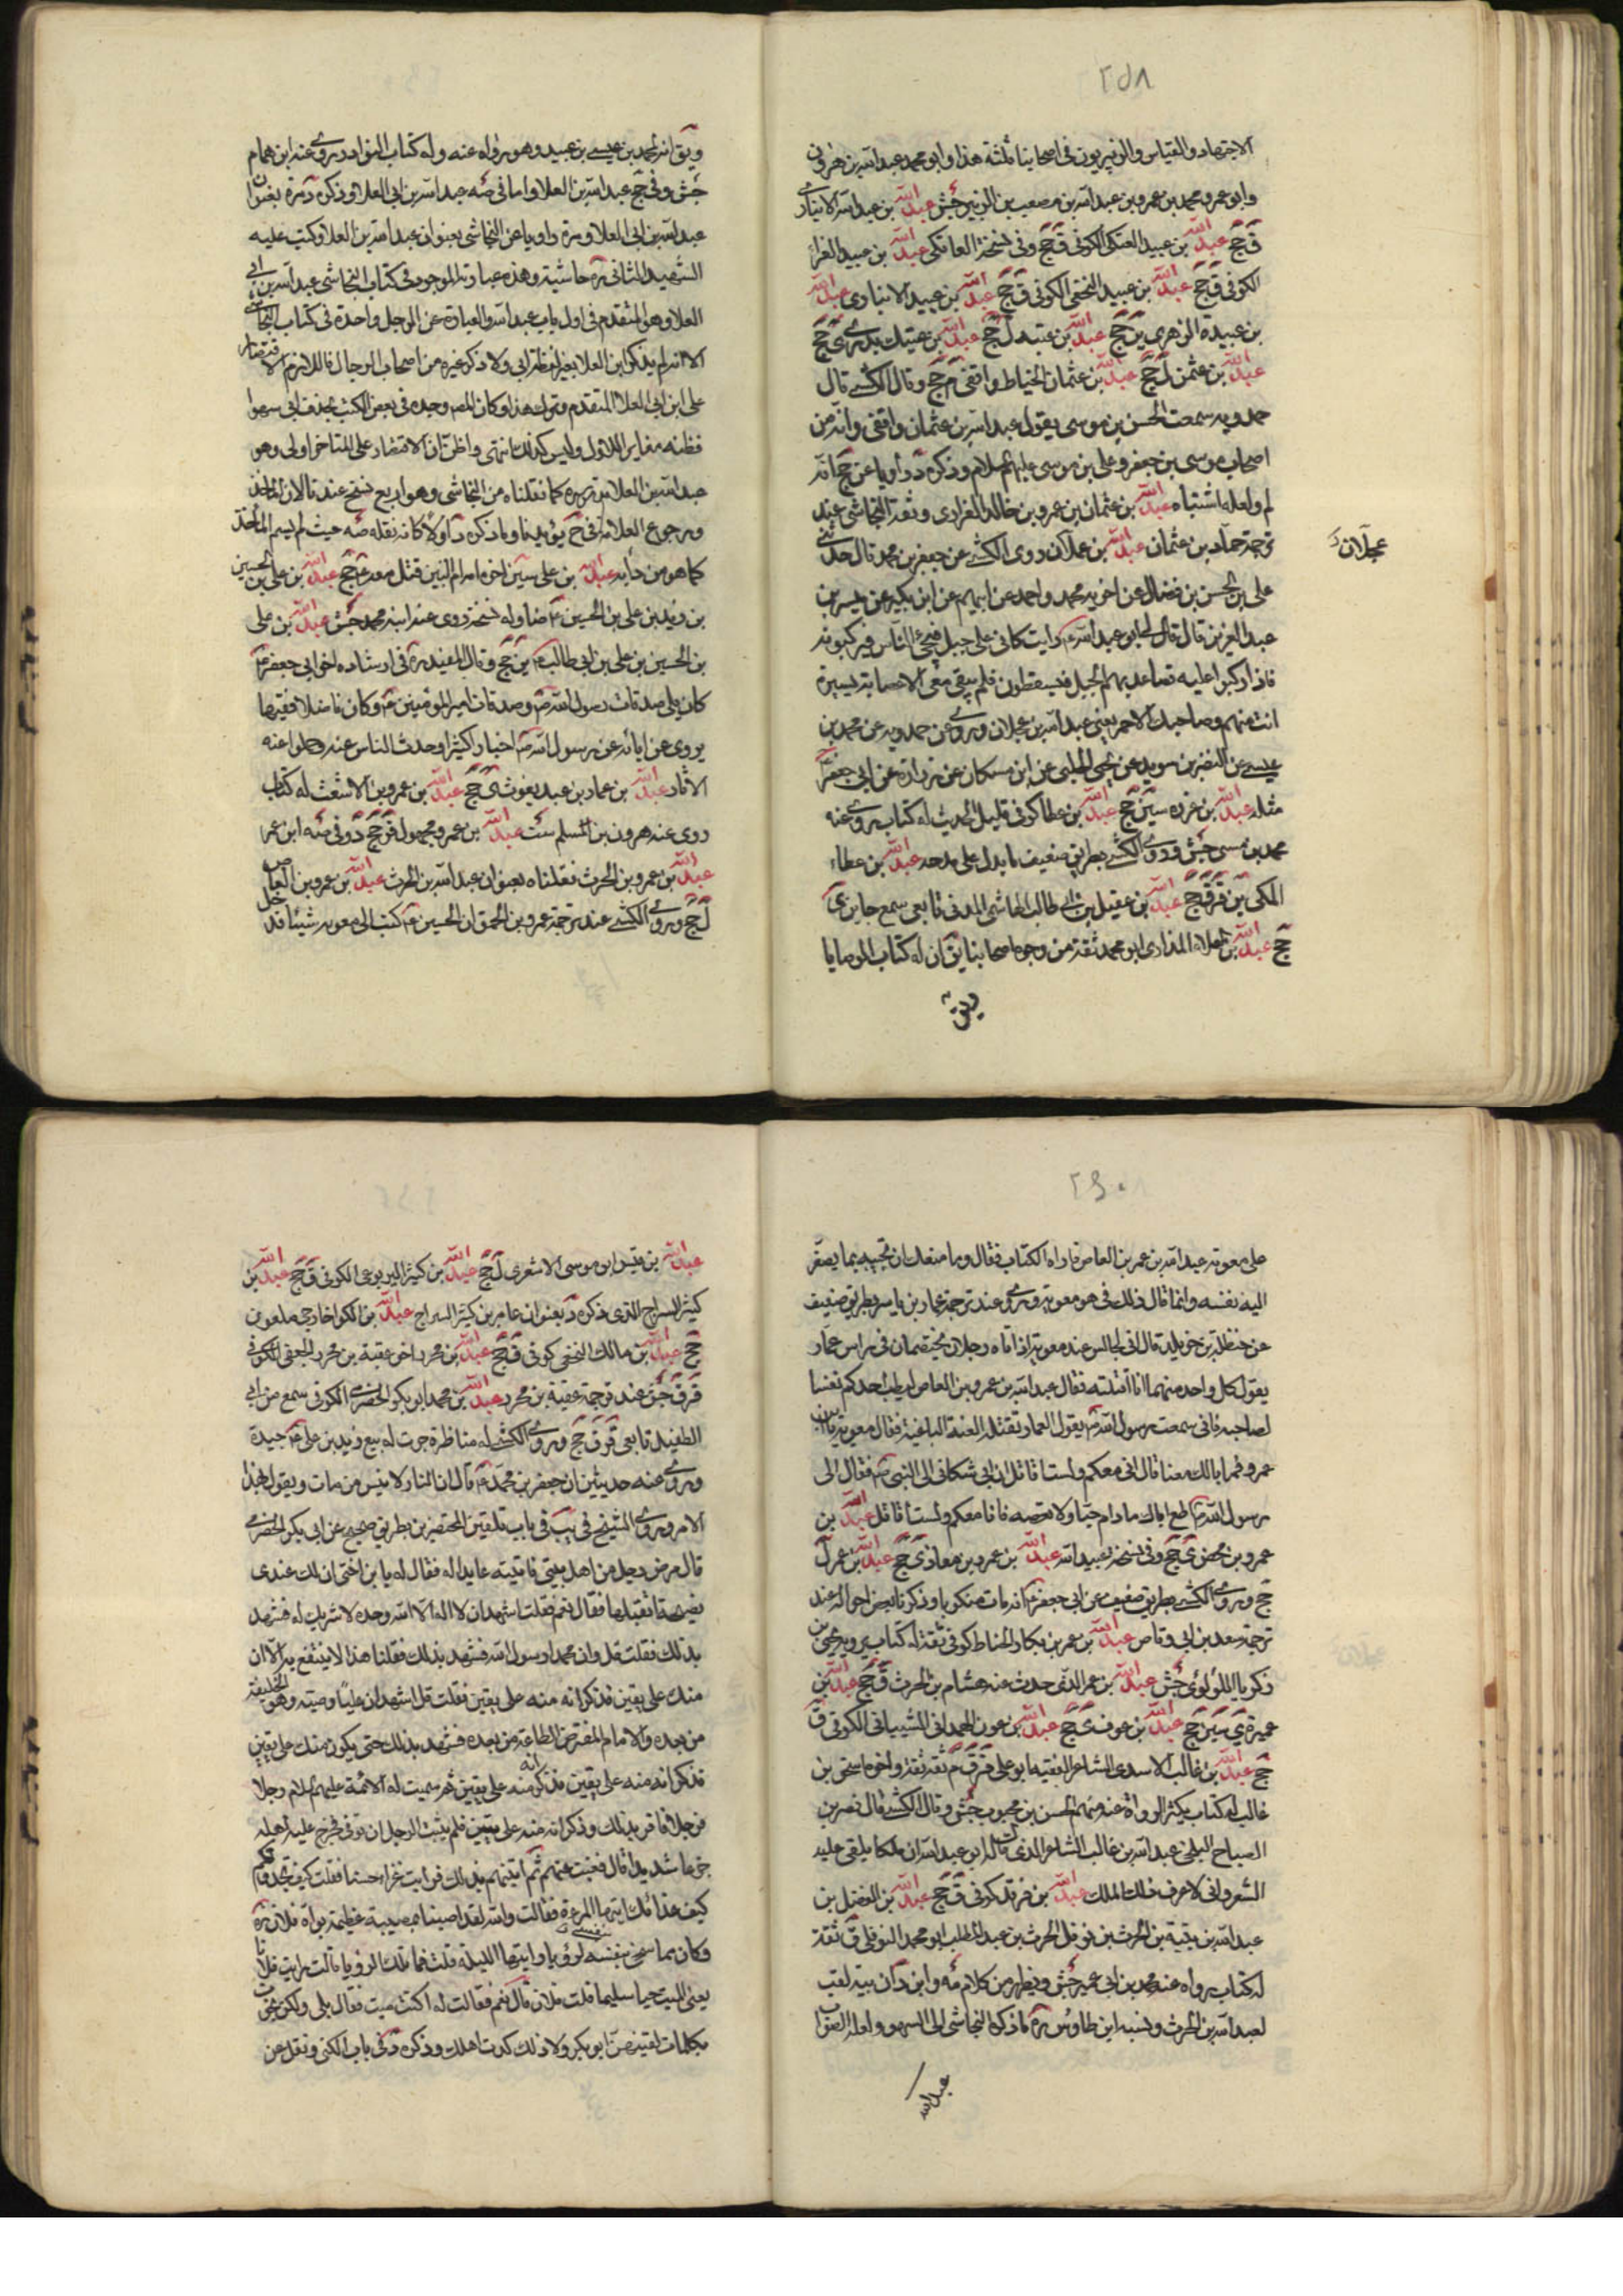 ٢٥٨
الاجتهاد والقياس والزبيريون فى اصحابنا ثلثة هذا وابو محمد عبدالله بن هرون
وابو عمرو محمد بن عمرو بن عبدالله بن مصعب بن الزبير جش عبدالله بن عبدالله الانبارى
ق جج عبدالله بن عبيد العتكى الكوفى ق جج وفى نسخة العاتكى عبدالله بن عبيد الغرا
الكوفى ق جج عبدالله بن عبيد النخعى الكوفى ق جج عبدالله بن عبيد الانبارى عبدالله
بن عبيدة الزهرى ين جج عبدالله بن عتبه ل جج عبدالله بن عتيك بدرى ى جج
عبدالله بن عثمن ل جج عبدالله بن عثمان الخياط واقفى م جج وقال الكشى قال
حمدويه سمعت الحسن بن موسى يقول عبدالله بن عثمان واقفى وانه من
اصحاب موسى بن جعفر وعلى بن موسى عليهم السلام وذكره د راويا عن جج انه
لم ولعله اشتباه عبدالله بن عثمان بن عمرو بن خالد الفزارى وثقه النجاشى عند
ترجمة حماد بن عثمان عبدالله بن عجلان روى الكشى عن جعفر بن محمد قال حدثنى
عجلان
على بن الحسن بن فضال عن اخويه محمد واحمد عن ابيهم عن ابن بكير عن ميسر بن
عبدالعزيز قال قال لى ابو عبدالله ع رايت كانى على جبل فيجئ الناس فيركبونه
فاذا ركبوا عليه تصاعد بهم الجبل فيسقطون فلم يبقى معى الا عصابة يسيرة
انت منهم وصاحبك الاحمر يعنى عبدالله بن عجلان وروى عن حمدويه عن محمد بن
عيسى عن النضر بن سويد عن يحيى الحلبى عن ابن مسكان عن زرارة عن ابى جعفر ع
مثله عبدالله بن غرده سين جج عبدالله بن عطا كوفى قليل الحديث له كتاب يروى عنه
محمد بن عيسى جش وروى الكشى بطريق ضعيف ما يدل على مدحه عبدالله بن عطاء
المكى ين قر ق جج عبدالله بن عقيل بن ابى طالب الهاشمى المدنى تابعى سمع جابر ى
جج عبدالله بن العلاء المذارى ابو محمد ثقة من وجوه اصحابنا يق ان له كتاب الوصايا
ويق
ويق انه لمحمد بن عيسى بن عبيد وهو رواه عنه وله كتاب النوادر روى عنه ابن همام
جش وفى جج عبدالله بن العلا واما فى صه عبدالله بن ابى العلا وذكره د مرة بعنوان
عبدالله بن ابى العلا ومرة راويا عن النجاشى بعنوان عبدالله بن العلا وكتب عليه
الشهيد الثانى ره حاشية وهذه عبارته الموجود فى كتاب النجاشى عبدالله بن ابى
العلا وهو المتقدم فى اول باب عبدالله والعبارة عن الرجل واحدة فى كتاب النجاشى
الا انه لم يذكر ابن العلا بغير لفظة ابى ولا ذكره غيره من اصحاب الرجال فاللازم الاقتصار
على ابن ابى العلا المتقدم وترك هذا وكان المص وجده فى بعض الكتب بحذف ابى سهوا
فظنه مغاير اللاول وليس كذلك انتهى واظن ان الاقتصار على المتاخر اولى وهو
عبدالله بن العلا مرة كما نقلناه من النجاشى وهو اربع نسخ عندنا الان
ورجوع العلامة فى ح يؤيدنا وما ذكره د اولا كانه نقله صه حيث لم يسم المأخذ
كما هو من دأبه عبدالله بن على سين اخوه امه ام البنين قتل معه ع جج عبدالله بن على بن الحسين
بن زيد بن على بن الحسين ع ضا وله نسخة روى عنه ابنه محمد جش عبدالله بن على
بن الحسين بن على بن ابى طالب ع ين جج وقال المفيد ره فى ارشاده اخو ابى جعفر ع
كان يلى صدقات رسول الله ص وصدقات امير المؤمنين ع وكان فاضلا فقيها
يروى عن ابائه عن رسول الله ص اخبارا كثيرا وحدث الناس عنه وحملوا عنه
الاثار عبدالله بن عمار بن عبد يغوث ى جج عبدالله بن عمرو بن الاشعث له كتاب
روى عنه هرون بن المسلم ست عبدالله بن عمرو مجهول قر جج د وفى صه ابن عمر
عبدالله بن عمرو بن الحرث نقلناه بعنوان عبدالله بن الحرث عبدالله بن عمرو بن العاص
ل جج وروى الكشى عند ترجمة عمرو بن الحمق ان الحسين ع كتب الى معويه شيئا قد دخل
٢٦٠
على معويه عبدالله بن عمر بن العاص فاراه الكتاب فقال وما منعك ان تجيبه بما يصغر
اليه نفسه وانما قال ذلك فى هو معويه وروى عند ترجمة عمار بن ياسر بطريق ضعيف
عن حنظلة بن خويلد قال انى لجالس عند معويه اذ اتاه رجلان يختصمان فى راس عمار
يقول كل واحد منهما انا قتلته فقال عبدالله بن عمرو بن العاص ليطب احدكم نفسا
لصاحبه فانى سمعت رسول الله ص يقول العمار تقتله الفئة الباغية فقال معويه يابن
عمرو فما بالك معنا قال انى معكم ولست اقاتل ان ابى شكانى الى النبى ص فقال الى
رسول الله ص اطع اباك مادام حيا ولا تعصه فانا معكم ولست اقاتل عبدالله بن
عمرو بن محصن ى جج وفى نسخه عبيدالله عبدالله بن عمرو بن معاذ ى جج عبدالله بن عمر ل
جج وروى الكشى بطريق ضعيف عن ابى جعفر ع انه مات منكوبا وذكرنا بعض احواله عند
ترجمة سعد بن ابى وقاص عبدالله بن عمر بن بكار الحناط كوفى ثقة له كتاب يرويه يحيى بن
زكريا اللؤلوئى جش عبدالله بن عمر الدنى حدث عنه هشام بن الحرث ق جج عبدالله بن
عميرة ى سين جج عبدالله بن عوف ى جج عبدالله بن عون الهمدانى الشيبانى الكوفى ق
جج عبدالله بن غالب الاسدى الشاعر الفقيه ابو على قر ق م ثقه ثقة واخوه اسحق بن
غالب له كتاب يكثر الرواة عنه منهم الحسن بن محبوب جش وقال الكشى قال نصر بن
الصباح البلخى عبدالله بن غالب الشاعر الذى قال له ابو عبدالله ان ملكا يلقى عليه
الشعر وانى لاعرف ذلك الملك عبدالله بن فرقد كوفى ق جج عبدالله بن الفضل بن
عبدالله بن ببة بن الحرث بن نوفل الحرث بن عبدالمطلب ابو محمد النوفلى ق ثقة
له كتاب رواه عنه محمد بن ابى عمير جش ويظهر من كلام صه وابن د ان ببة لقب
لعبدالله بن الحرث ونسبه ابن طاوس ره ما ذكره النجاشى الى السهو ولعله الصواب
عبدالله
عبدالله بن قيس ابو موسى الاشعرى ل جج عبدالله بن كثير اليربوعى الكوفى ق جج عبدالله بن
كثير السراج الذى ذكره د بعنوان عامر بن كثير السراج عبدالله بن الكوا خارجى ملعون
جج عبدالله بن مالك النخعى كوفى ق جج عبدالله بن محرد اخو عقبة بن محرد الجعفى الكوفى
قر ق جش عند ترجمة عقبة بن محرد عبدالله بن محمد ابو بكر الحضرمى الكوفى سمع من ابى
الطفيل تابعى قر ق جج وروى الكشى له مناظرة جرت له مع زيد بن على ع جيدة
وروى عنه حديثين ان جعفر بن محمد ع قال ان النار لا تمس من مات ويقول بهذا
الامر وروى الشيخ فى يب فى باب تلقين المحتضرين بطريق صحيح عن ابى بكر الحضرمى
قال مرض رجل من اهل بيتى فاتيته عايدا له فقلت له يا بن اخى ان لك عندى
نصيحة اتقبلها فقال نعم فقلت اشهد ان لا اله الا الله وحده لا شريك له فشهد
بذلك فقلت قل وان محمدا رسول الله فشهد بذلك فقلت ان هذا لا ينتفع به الا ان
منك على يقين فذكر انه منه على يقين فقلت قل اشهد ان عليا وصيه وهو الخليفة
من بعده والامام المفترض الطاعة من بعده فشهد بذلك حتى يكون منك على يقين
فذكر انه منه على يقين فذكر انه منه على يقين ثم سميت له الائمة عليهم السلام رجلا
فرجلا فاقر بذلك وذكر انه منه على يقين فلم يلبث الرجل ان توفى فجزع عليه اهله
جزعا شديدا قال فغبت عنهم ثم اتيتهم بعد ذلك فرايت عزاء حسنا فقلت كيف تجدونكم
كيف عزاؤك ايتها المرءة فقالت والله لقد اصبنا بمصيبة عظيمة بوفاة فلان ره
وكان مما سخى بنفسه لرؤيا رايتها الليلة قلت فما تلك الرؤيا قالت رايت فلانا
يعنى الميت حيا سليما قلت فلان قال نعم فقالت له اكنت ميت فقال بلى ولكن نجوت
بكلمات لقنيهن ابو بكر ولا ذلك كدت اهلك وذكره د فى باب الكنى ونقل عن